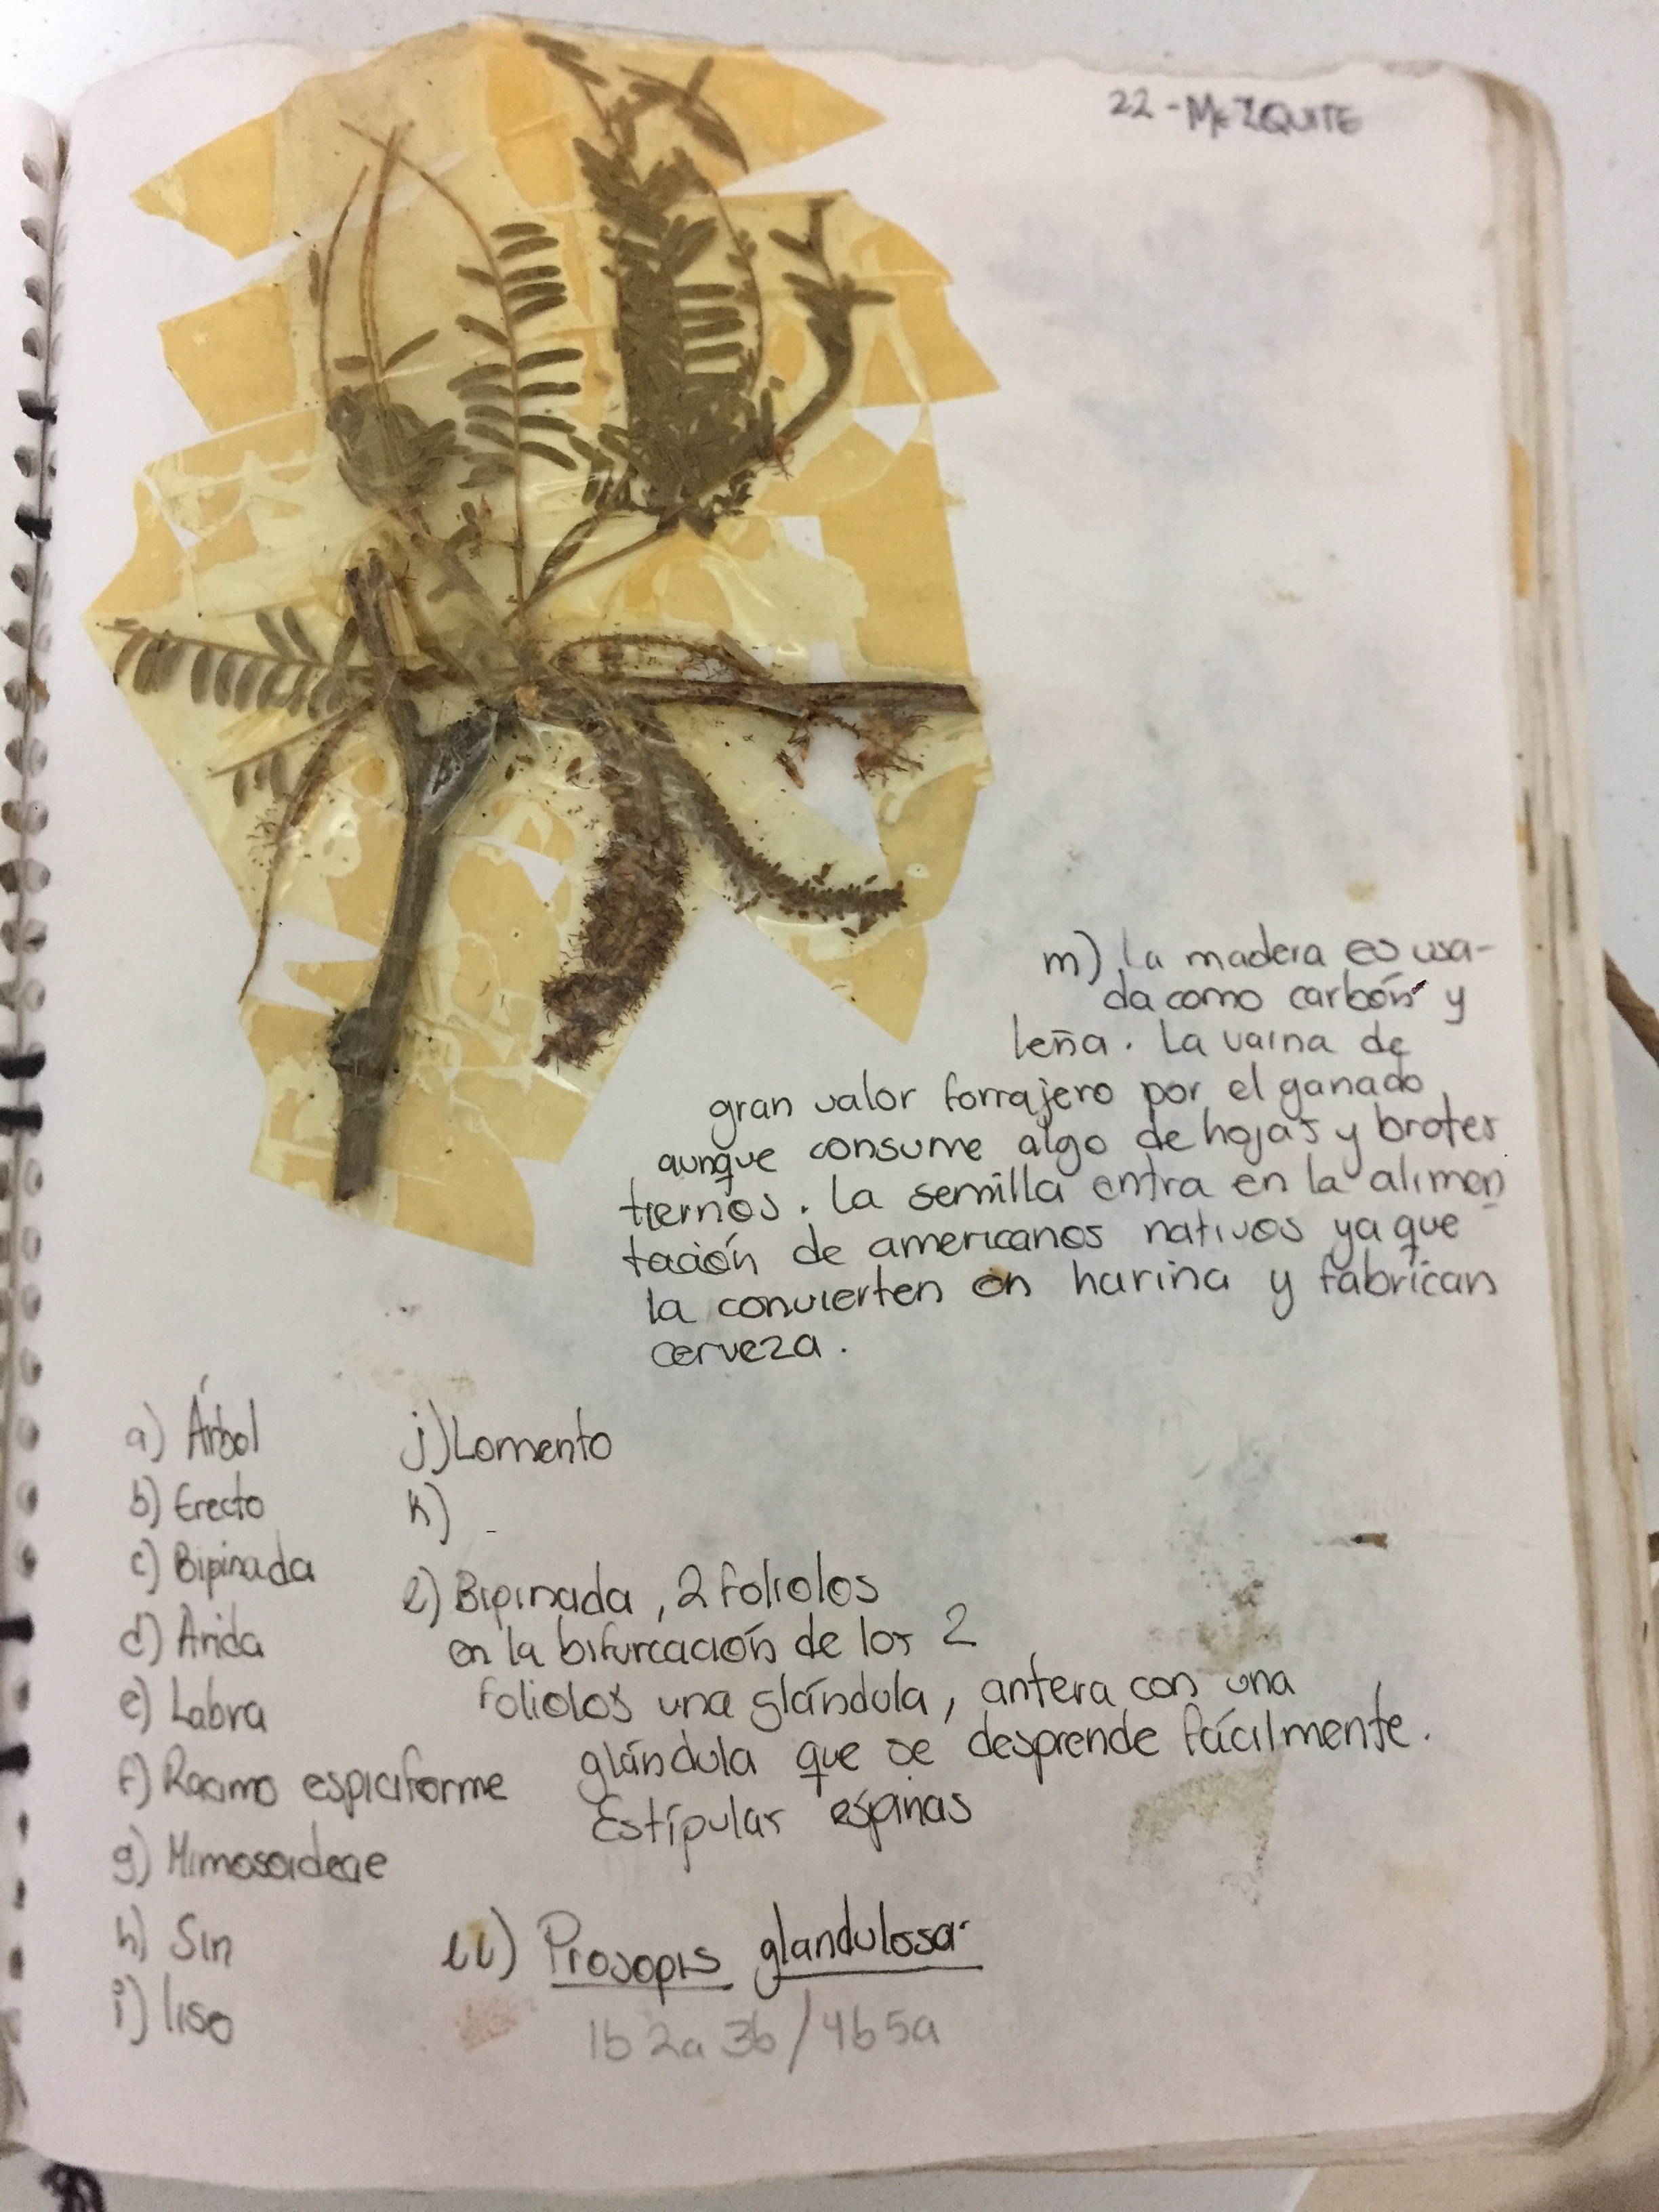 22-MEZQUITE
m) La madera es usa-
da como carbón y
leña. La vaina de
gran valor forrajero por el ganado
aunque consume algo de hojas y brotes
tiernos. La semilla entra en la alimen
tación de americanos nativos ya que
la convierten en harina y fabrican
cerveza.
a) Árbol
b) Erecto
c) Bipinada
d) Arida
e) Labra
f) Racimo espiciforme
g) Mimosoideae
h) Sin
i) liso
j) Lomento
k) -
l) Bipinada, 2 foliolos
en la bifurcación de los 2
foliolos una glándula, antera con una
glándula que se desprende fácilmente.
Estípulas espinas
ll) Prosopis glandulosa
1b 2a 3b/4b 5a